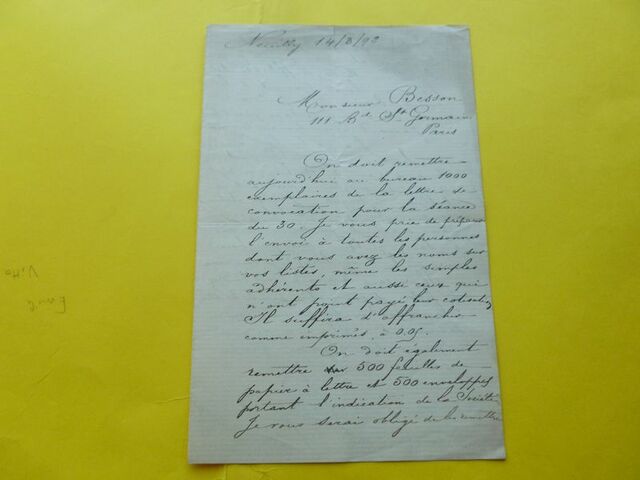 Neuilly 14/8/98
Monsieur Besson
111 Bd St Germain
Paris
On doit remettre
aujourd'hui au bureau 1000
exemplaires de la lettre de
convocation pour la séance
du 30. Je vous prie de préparer
l'envoi à toutes les personnes
dont vous avez les noms sur
vos listes, même les simples
adhérents et aussi ceux qui
n'ont point payé leur cotisation
Il suffira d'affranchir
comme imprimés à 0.05.
On doit également
remettre 500 feuilles de
papier à lettre et 500 enveloppes
portant l'indication de la Société
Je vous serais obligé de les remettre